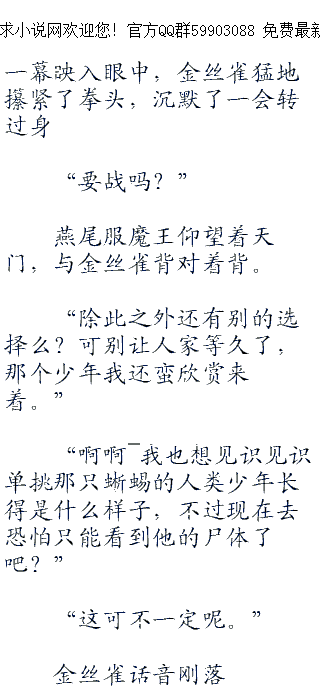 求小说网欢迎您！官方QQ群59903088 免费最新
一幕映入眼中，金丝雀猛地
攥紧了拳头，沉默了一会转
过身
“要战吗？”
燕尾服魔王仰望着天
门，与金丝雀背对着背。
“除此之外还有别的选
择么？可别让人家等久了，
那个少年我还蛮欣赏来
着。”
“啊啊¯我也想见识见识
单挑那只蜥蜴的人类少年长
得是什么样子，不过现在去
恐怕只能看到他的尸体了
吧？”
“这可不一定呢。”
金丝雀话音刚落